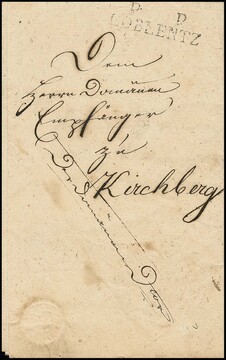 P. P.
COBLENTZ
Dem
Herrn Domänen
Empfänger
zu
Kirchberg